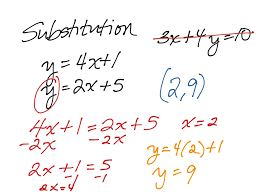 Substitution
3x+4y=10
y=4x+1
y=2x+5
(2,9)
4x+1=2x+5
x=2
-2x -2x
y=4(2)+1
2x+1=5
y=9
-1 -1
2x=4